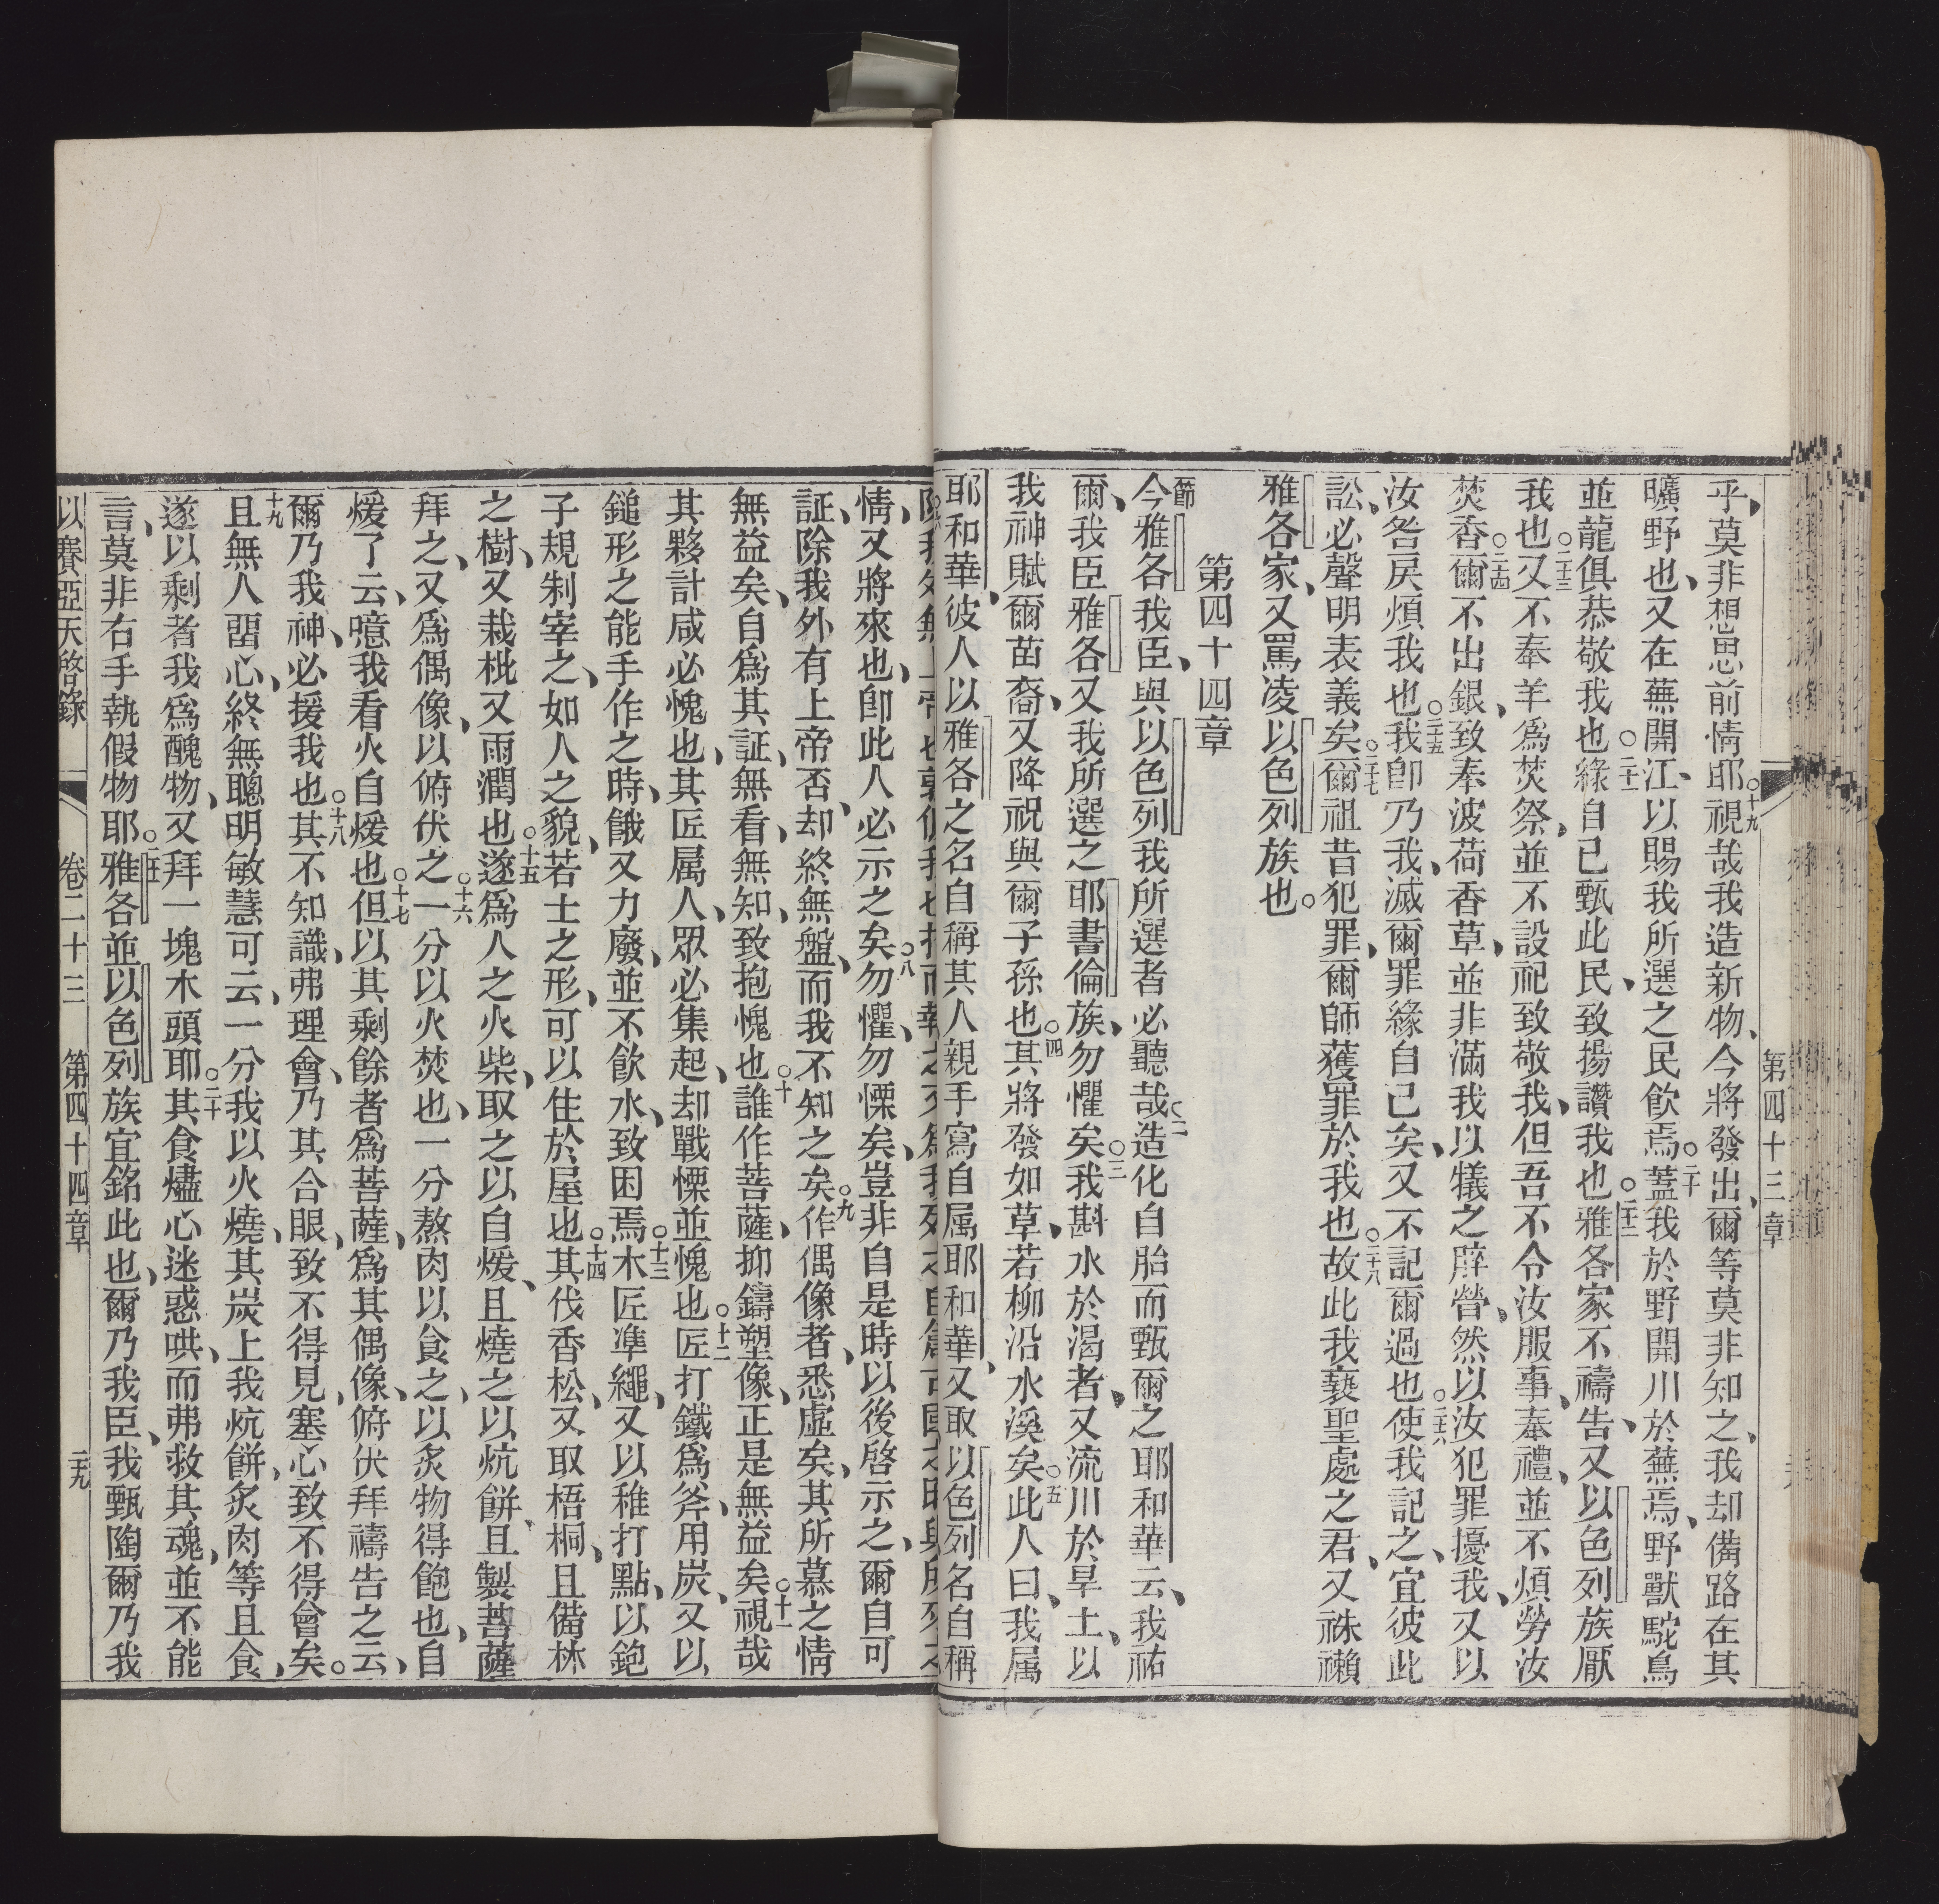 第四十三章
乎、莫非想思前情耶○十九視哉我造新物、今將發出、爾等莫非知之、我却備路在其
曠野也、又在蕪開江、以賜我所選之民飲焉○二十蓋我於野開川於蕪焉、野獸駝鳥
並龍俱恭敬我也○二十一緣自己甄此民、致揚讚我也○二十二雅各家不禱告、又以色列族厭
我也○二十三又不奉羊爲焚祭、並不設祀致敬我、但吾不令汝服事、奉禮、並不煩勞汝
焚香○二十四爾不出銀、致奉波荷香草、並非滿我以犧之脺膋、然以汝犯罪擾我、又以
汝咎戾煩我也○二十五我卽乃我、滅爾罪緣自己矣、又不記爾過也○二十六使我記之、宜彼此
訟、必聲明表義矣○二十七爾祖昔犯罪、爾師獲罪於我也○二十八故此我褻聖處之君、又祩襰
雅各家、又罵凌以色列族也○
第四十四章
節今雅各我臣、與以色列我所選者必聽哉○二造化自胎而甄爾之耶和華云、我祐
爾、我臣雅各又我所選之耶書倫族、勿懼矣○三我斟水於渴者、又流川於旱土、以
我神賦爾苗裔、又降祝與爾子孫也○四其將發如草、若柳沿水溪矣○五此人曰、我属
耶和華、彼人以雅各之名自稱其人親手寫自属耶和華、又取以色列名自稱
情、又將來也、卽此人必示之矣○八勿懼、勿慄矣、豈非自是時以後啓示之、爾自可
証、除我外有上帝否、却終無盤、而我不知之矣○九作偶像者、悉虛矣、其所慕之情
無益矣、自爲其証、無看、無知、致抱愧也○十誰作菩薩、抑鑄塑像、正是無益矣○十一視哉
其夥計咸必愧也、其匠属人、眾必集起、却戰慄並愧也○十二匠打鐵爲斧、用炭、又以
鎚形之能手作之時、餓又力廢、並不飲水、致困焉○十三木匠準繩、又以稚打點、以鉋
子規制宰之、如人之貌、若士之形、可以住於屋也○十四其伐香松、又取梧桐、且備林
之樹、又栽枇又雨潤也○十五遂爲人之火柴、取之以自煖、且燒之以炕餅、且製菩薩
拜之、又爲偶像、以俯伏之○十六一分以火焚也、一分熬肉以食之、以炙物得飽也、自
煖了云、噫我看火自煖也○十七但以其剩餘者爲菩薩、爲其偶像、俯伏拜禱告之云、
爾乃我神、必援我也○十八其不知識、弗理會、乃其合眼、致不得見、塞心致不得會矣○
十九且無人畱心、終無聰明敏慧可云、一分我以火燒、其炭上我炕餅、炙肉等且食、
遂以剩者我爲醜物、又拜一塊木頭耶○二十其食燼心迷惑哄、而弗救其魂、並不能
言、莫非右手執假物耶○二十一雅各並以色列族宜銘此也、爾乃我臣、我甄陶爾乃我
以賽亞天啓錄 卷二十三 第四十四章 二十九